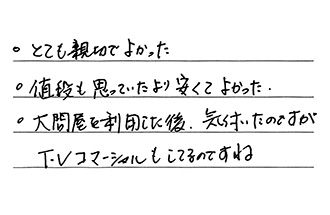 。とても親切でよかった
。値段も思っていたより安くてよかった.
。大問屋を利用した後、気付いたのですが
T.Vコマーシャルもしてるのですね